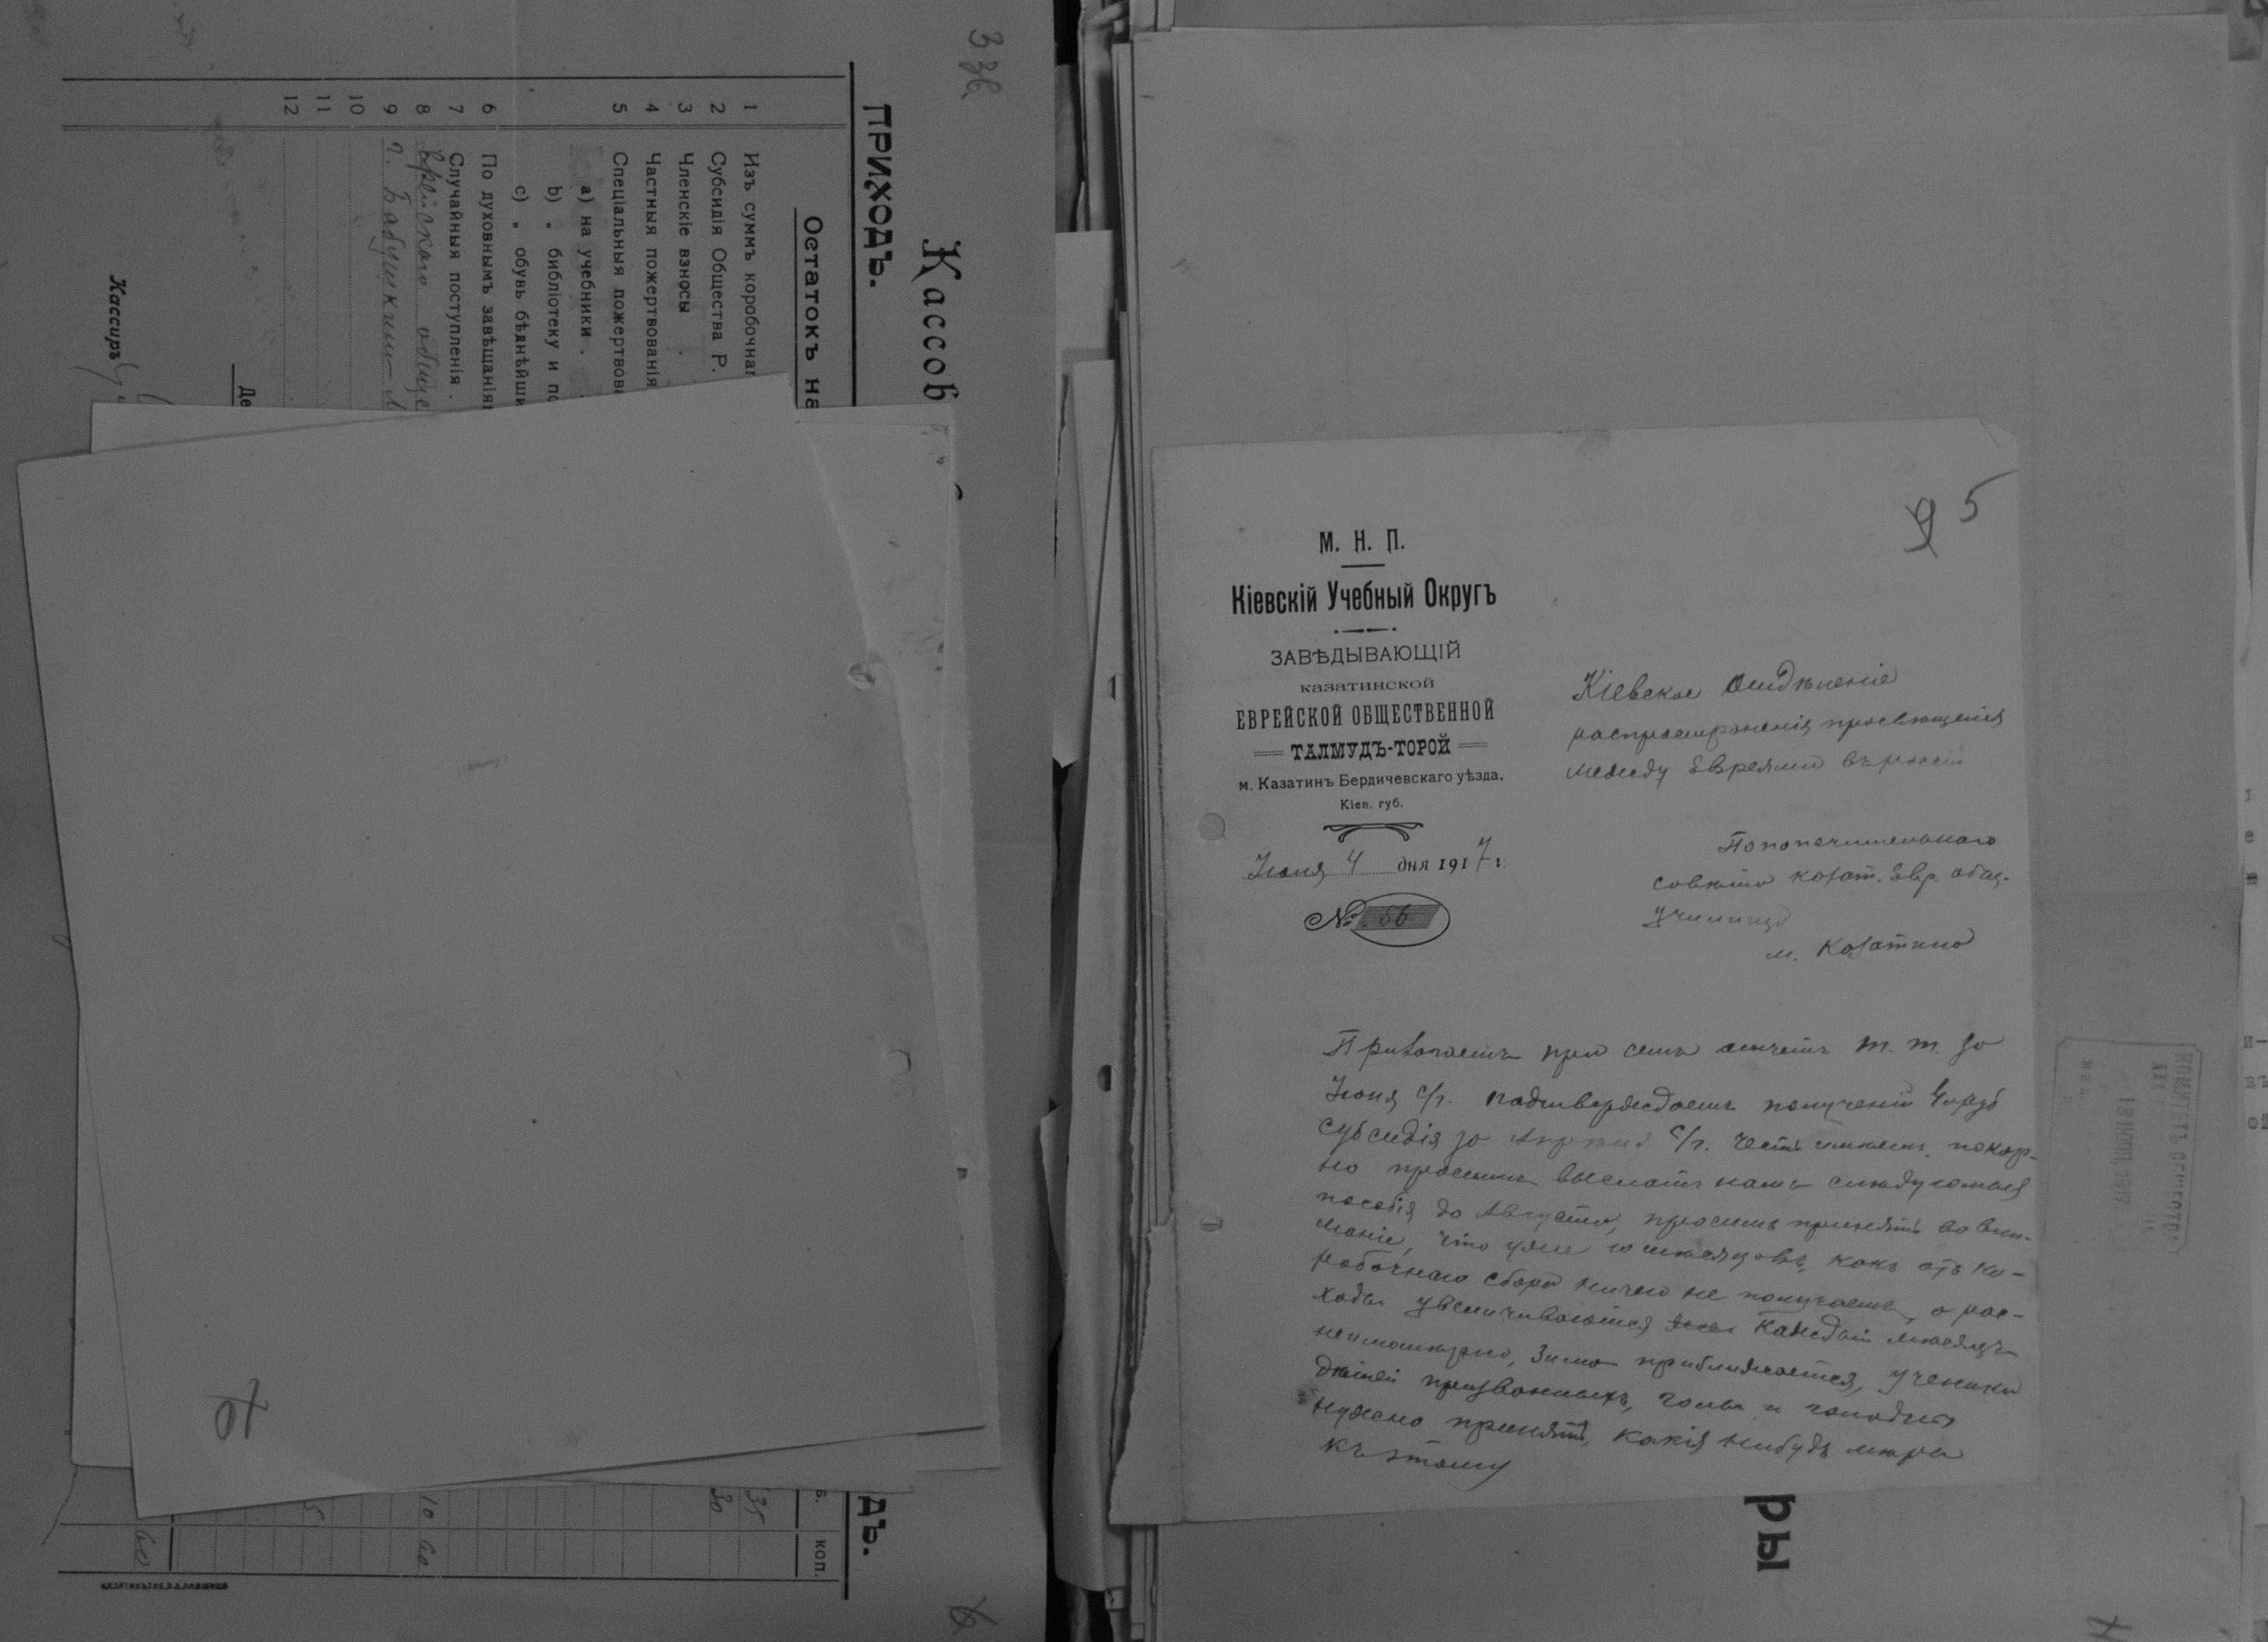 33b
Кассов
ПРИХОДЪ.
Остатокъ на
1 Изъ суммъ коробочнаг
2 Субсидія Общества Р.
3 Членскіе взносы .
4 Частныя пожертвованія
5 Спеціальныя пожертвова
a) на учебники .
b) „ библіотеку и по
c) „ обувь бѣднѣйши
6 По духовнымъ завѣщанія
7 Случайныя поступленія .
8 Еврейскаго обще
9
10
11
12
Де
Кассиръ
ДЪ.
коп.
35
30
10 60
5
60
6
95
М. Н. П.
Кіевскій Учебный Округъ
ЗАВѢДЫВАЮЩІЙ
КАЗАТИНСКОЙ
ЕВРЕЙСКОЙ ОБЩЕСТВЕННОЙ
ТАЛМУДЪ-ТОРОЙ
м. Казатинъ Бердичевскаго уѣзда,
Кіев. губ.
Іюня 4 дня 1917 г.
№ 56
Кіевское Отдѣленіе
распространенія просвѣщенія
между Евреями въ
Попопечительнаго
совѣта Козат. Евр. общ.
училища
м. Козатина
при семъ отчетъ т. т. за
Іюня с/г. подтверждаемъ полученіи
субсидія за Апрѣля с/г. Честь имѣемъ покор-
но просимъ выслать намъ слѣдуемыя
пособія до Августа, просимъ принять во вни-
маніе, что уже 10 мѣсяцовъ, какъ отъ ко-
робочнаго сбора ничего не получаемъ, а рас-
ходы увеличиваются каждый мѣсяцъ
зима приближается, ученики
дѣтей призванныхъ, голы и
нужно принять какія нибудь мѣры
къ этому
КОМИТЕТЪ ОБЩЕСТВ
1917
ры